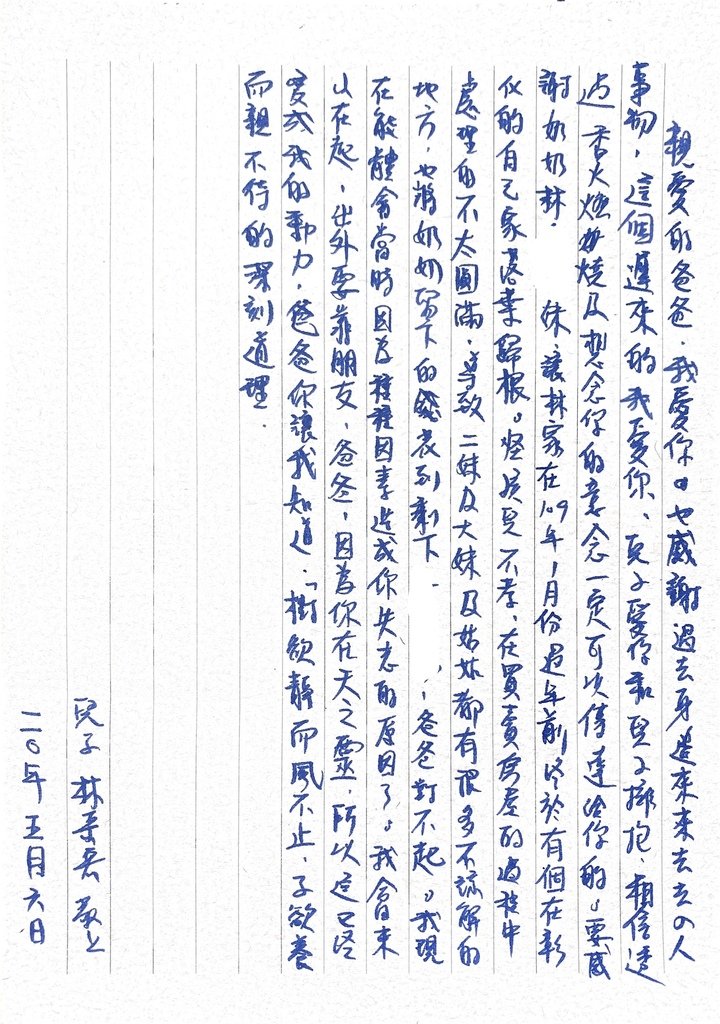 親愛的爸爸.我愛你。也感謝過去身邊來來去去的人
事物,這個遲來的我愛你、兒子愛你和兒子擁抱.相信透
過香火燃燒及想念你的意念一定可以傳達給你的。要感
謝奶奶林. 妹.讓林家在109年1月份過年前終於有個在彰
化的自己家落葉歸根。怪孩兒不孝、在買賣房屋的過程中
處理的不太圓滿.導致二妹及大妹及姑姑都有很多不諒解的
地方.也將奶奶留下的錢花到剩下 ,爸爸對不起。我現
在能體會當時因為種種因素造成你失志的原因了。我會東
山在起.出外要靠朋友.爸爸,因為你在天之靈.所以這已經
變成我的動力.爸爸你讓我知道.「樹欲靜而風不止.子欲養
而親不待的深刻道理.
兒子 林 敬上
一一〇年五月六日